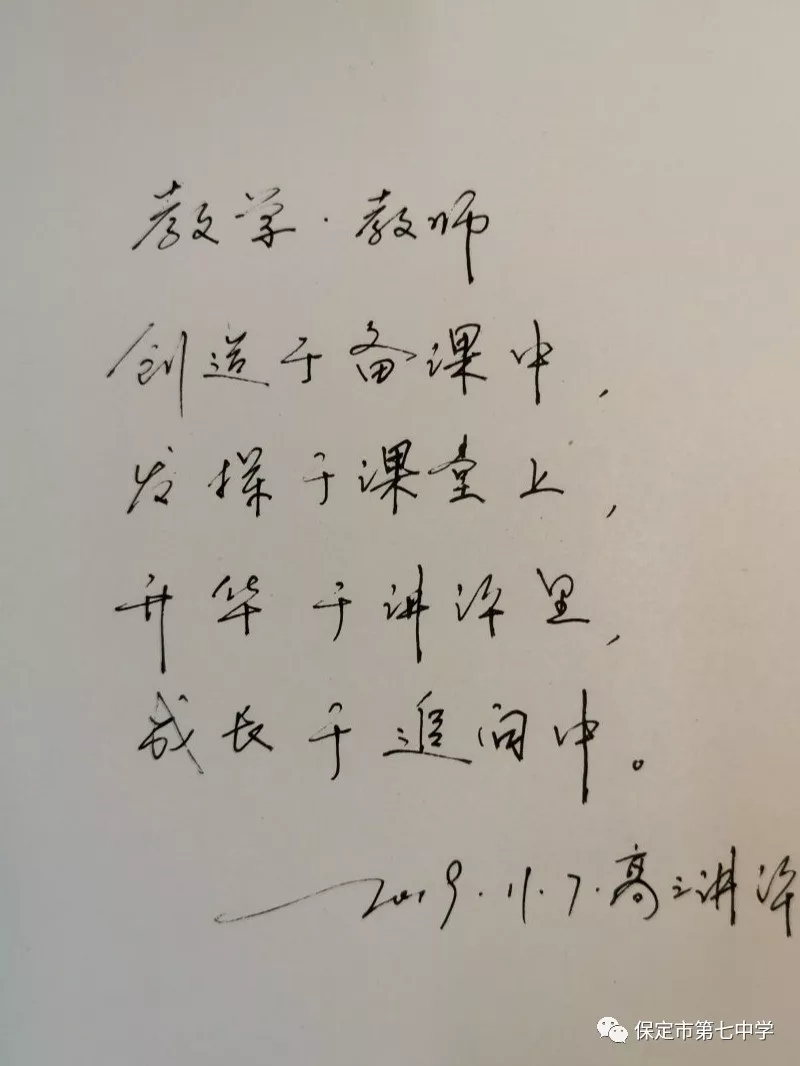 教学·教师
创造于备课中，
发挥于课堂上，
升华于讲评里，
成长于追问中。
—2019.11.7.高三讲评
保定市第七中学